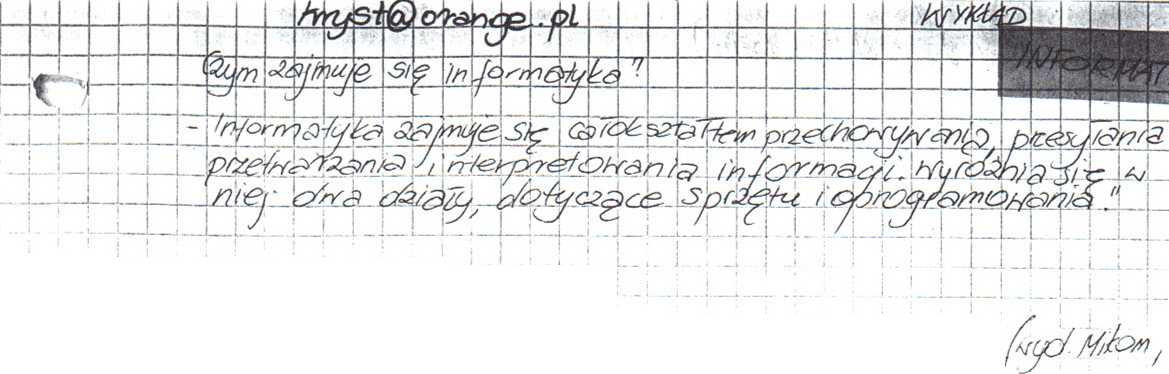 mryst@orange.pl WYKŁAD
INFORMAT
Czym zajmuje się informatyka?
- Informatyka zajmuje się całokształtem przechowywania, przesyłania
przetwarzania i interpretowania informacji. Wyróżnia się w
niej dwa działy, dotyczące sprzętu i oprogramowania."
(wyd. Mikom,